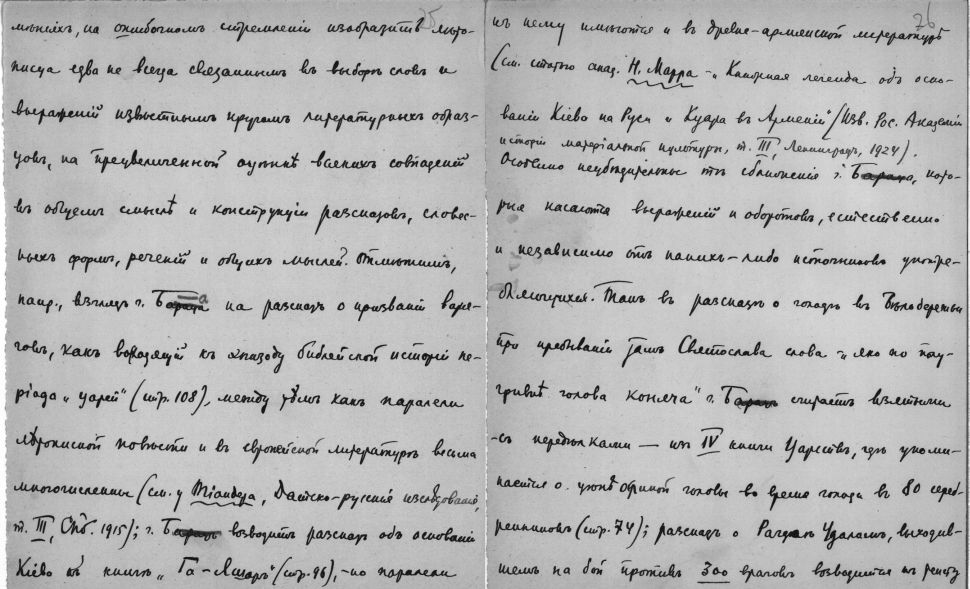 25
мѣнiяхъ, на ошибочномъ стремленiи изобразить лѣто-
писца едва не всегда связаннымъ въ выборѣ словъ и
выраженiй извѣстнымъ кругомъ литературныхъ образ-
цовъ, на преувеличенной оцѣнкѣ всякихъ совпаденiй
въ общемъ смыслѣ и конструкцiи разсказовъ, словес-
ныхъ формъ, реченiй и общихъ мыслей. Отмѣтимъ,
напр., взглядъ г. Б-а на разсказъ о призванiи варя-
говъ, какъ восходящiй къ эпизоду библейской исторiи пе-
рiода „царей" (стр. 108), между тѣмъ какъ паралели
лѣтописной повѣсти и въ европейской литературѣ весьма
многочисленны (см. у Тiандера, Датско-русскiя изслѣдованiя,
т. III, Спб. 1915); г. Барацъ возводитъ разсказъ объ основанiи
Кiева къ книгѣ „Га-Яшаръ" (стр. 96), -но паралели
26
къ нему имѣются и въ древне-армянской литературѣ
(см. статью акад. Н. Марра -„ Книжная легенда объ осно-
ванiи Кiева на Руси и Куара въ Арменiи" /Изв. Рос. Академiи
исторiи матерiальной культуры, т. III, Ленинградъ, 1924).
Особенно неубѣдительны тѣ сближенiя г. Бараца, кото-
рыя касаются выраженiй и оборотовъ, естественно
и независимо отъ какихъ-либо источниковъ употре-
бляющихся. Такъ въ разсказѣ о голодѣ въ Бѣлобережьи
при пребыванiи тамъ Святослава слова „яко по полу-
гривнѣ голова коняча" г. Барацъ считаетъ взятыми
-съ передѣлками — изъ IV книги Царствъ, гдѣ упоми-
нается о цѣнѣ ослиной головы во время голода въ 80 сереб-
ренниковъ (стр. 74); разсказъ о Рагдаѣ Удаломъ, выходив-
шемъ на бой противъ 300 враговъ возводится къ тексту